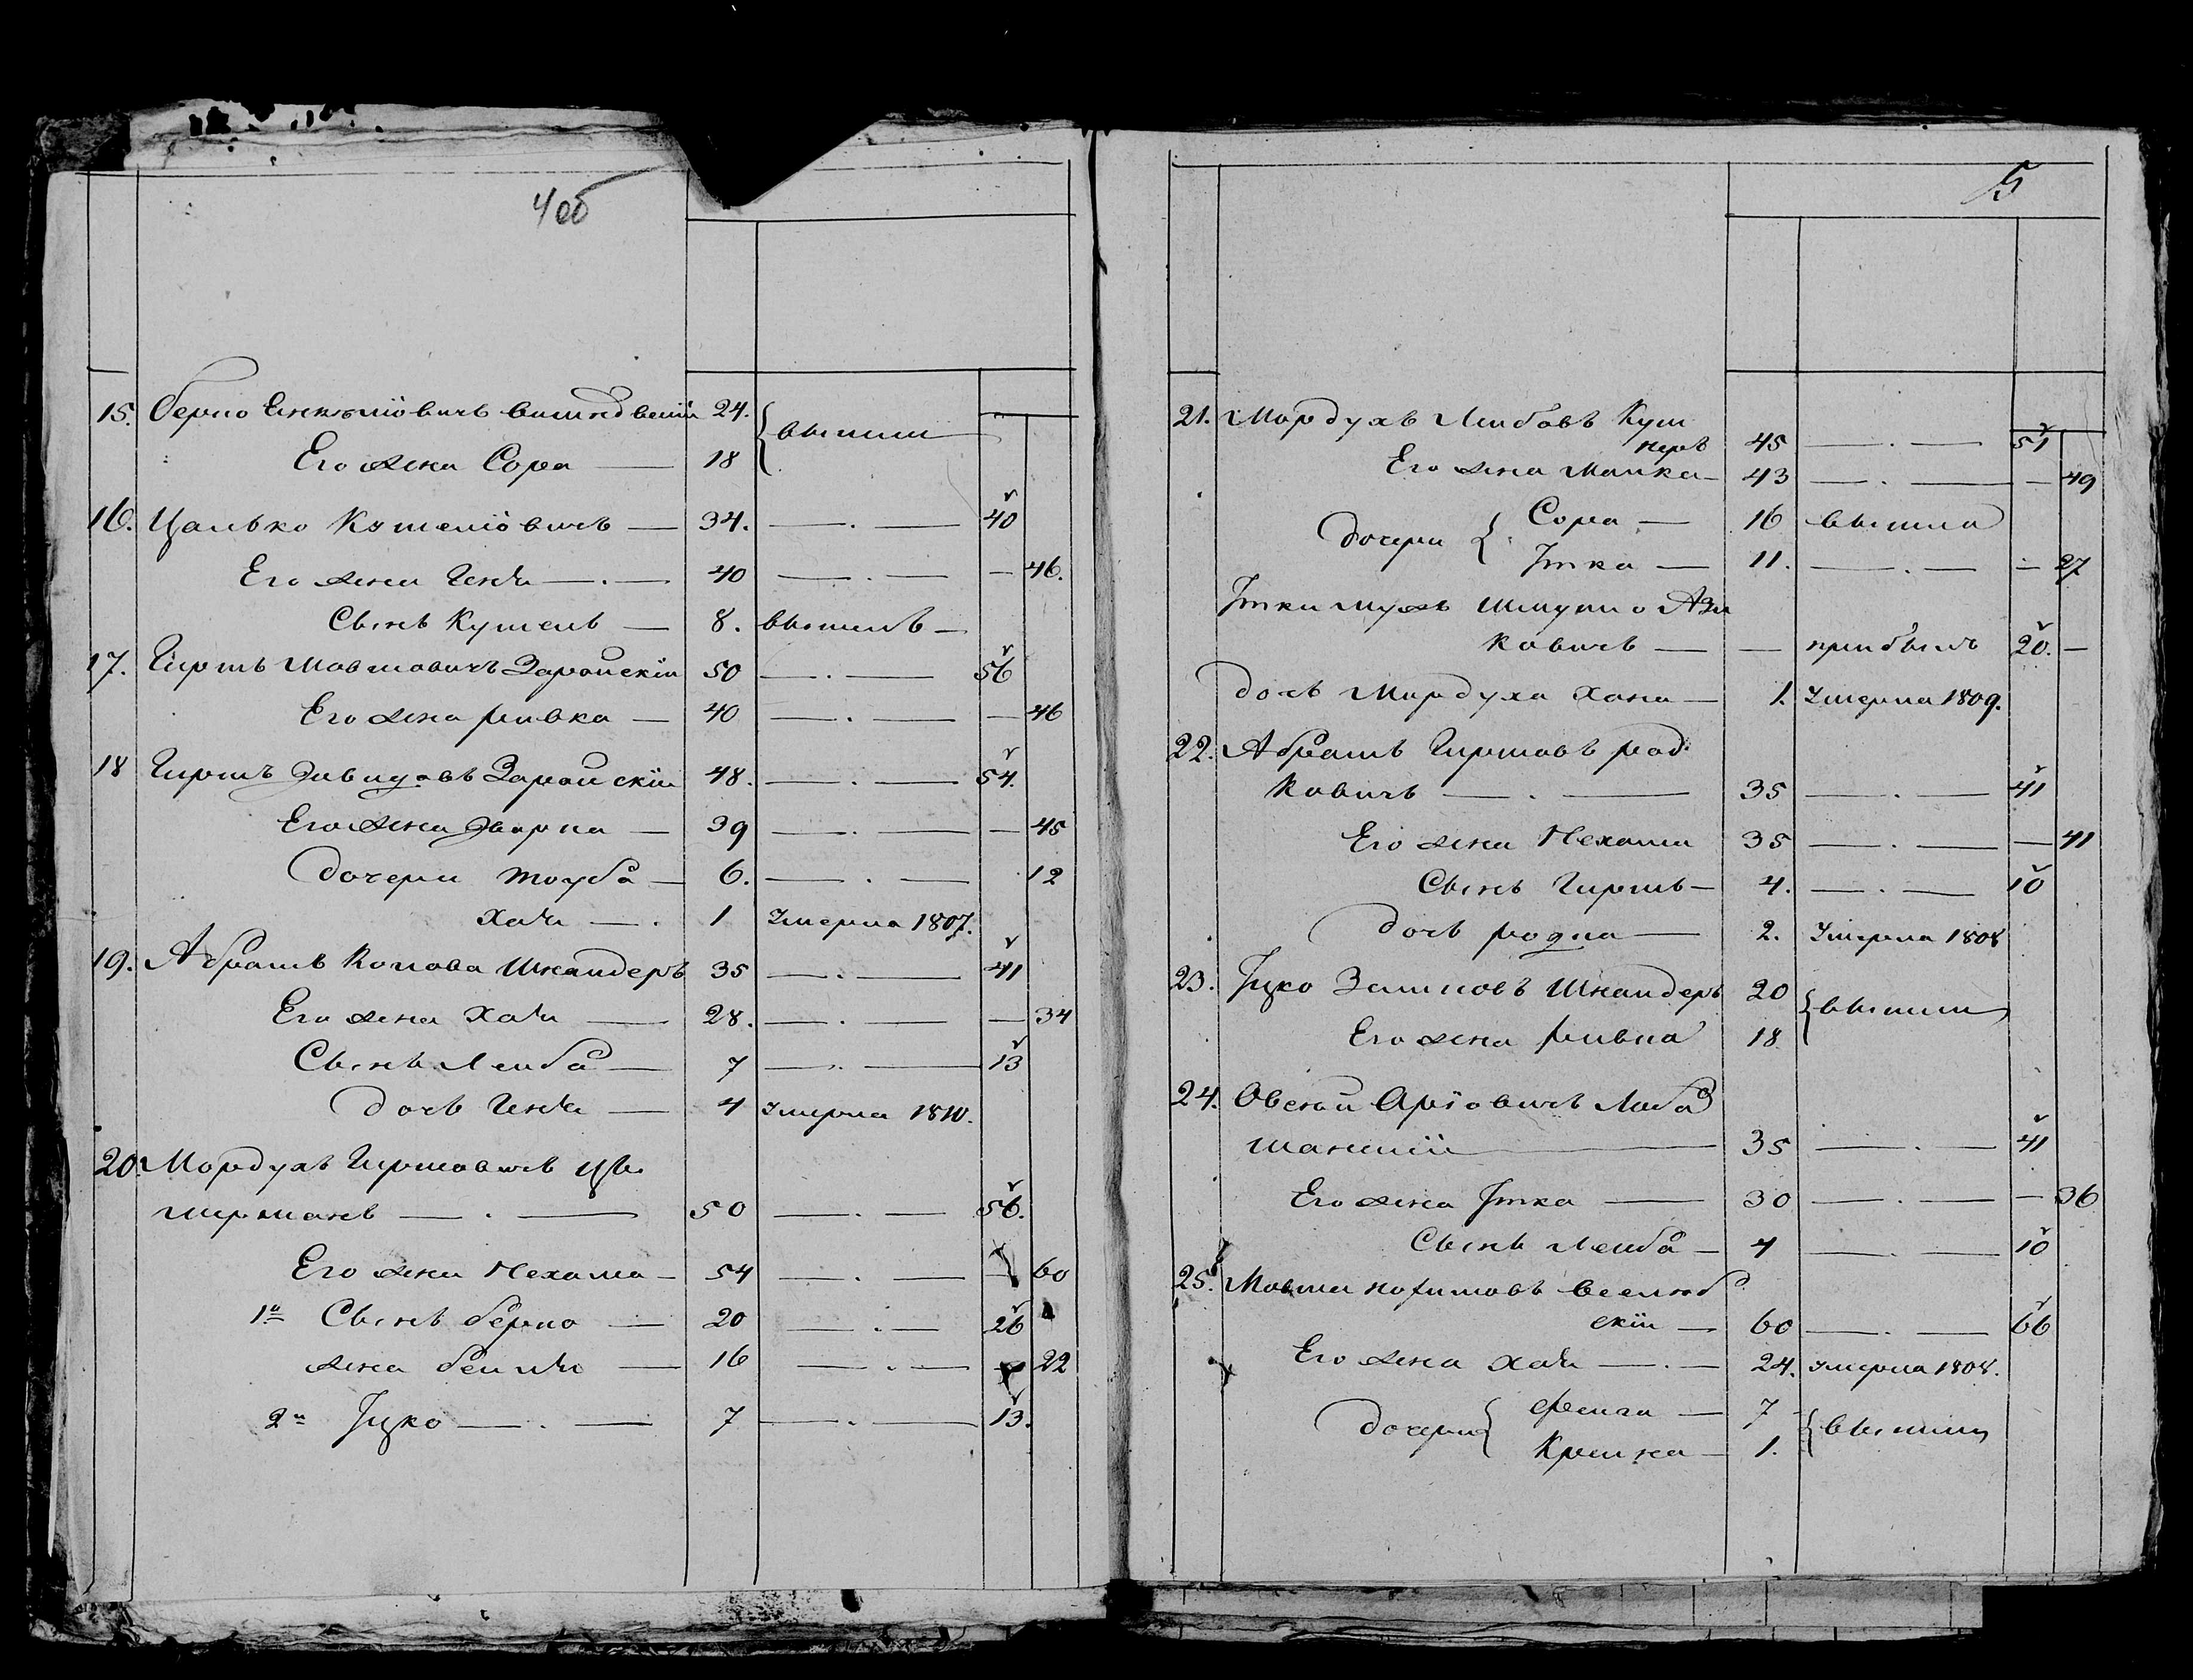 4об
15. Берко Енкелiовичъ Вишневскiй 24. вышли
Его жена Сора — 18
16. Цалько Кушелiовичъ — 34. —.— 40
Его жена Геня —.— 40 —.— — 46.
Сынъ Кушель — 8. вышелъ —
17. Гиршъ Мовшовичъ Зарайскiй 50 —.— 56
Его жена Ривка — 40 —.— — 46
18 Гиршъ Давидовъ Зарайскiй 48. —.— 54.
Его жена Двария — 39 —.— — 45
Дочери Тауба — 6. —.— 12
Хая —. 1 Умерла 1807.
19. Абрамъ Копова Шнайдеръ 35 —.— 41
Его жена Хая — 28. —.— — 34
Сынъ Лейба — 7 —.— 13
Дочь Геня — 4 Умерла 1810.
20. Мордухъ Гиршовичъ Ци
мерманъ —.— 50 —.— 56.
Его жена Нехама — 54 —.— — 60
1й Сынъ Берко — 20 —.— 26
жена Бейля — 16 —.— — 22
2й Iцко —.— 7 —.— 13.
5
21. Мордухъ Лейбовъ Куш
неръ 45 —.— 51
Его жена Малка — 43 —.— — 49
Дочери Сора — 16 вышла
Iтка — 11. —.— — 27
Iтки мужъ Шмуйло Аз
ковичъ — — прибылъ 20. —
Дочь Мордуха Хана — 1. Умерла 1809.
22. Абрамъ Гиршовъ Рад
ковичъ —.— 35 —.— 41
Его жена Нехама 35 —.— — 41
Сынъ Гиршъ — 4. —.— 10
Дочь Родна — 2. Умерла 1808
23. Iцко Залиновъ Шнайдеръ 20 вышли
Его жена Ривка 18
24. Овсей Арiовичъ Лоба
шанскiй — 35 —.— 41
Его жена Iтка — 30 —.— — 36
Сынъ Лейба — 4 —.— 10
25. Мовша
скiй — 60 —.— 66
Его жена Хая —.— 24. Умерла 1808.
Дочери Фейга — 7 вышли
Крейна — 1.